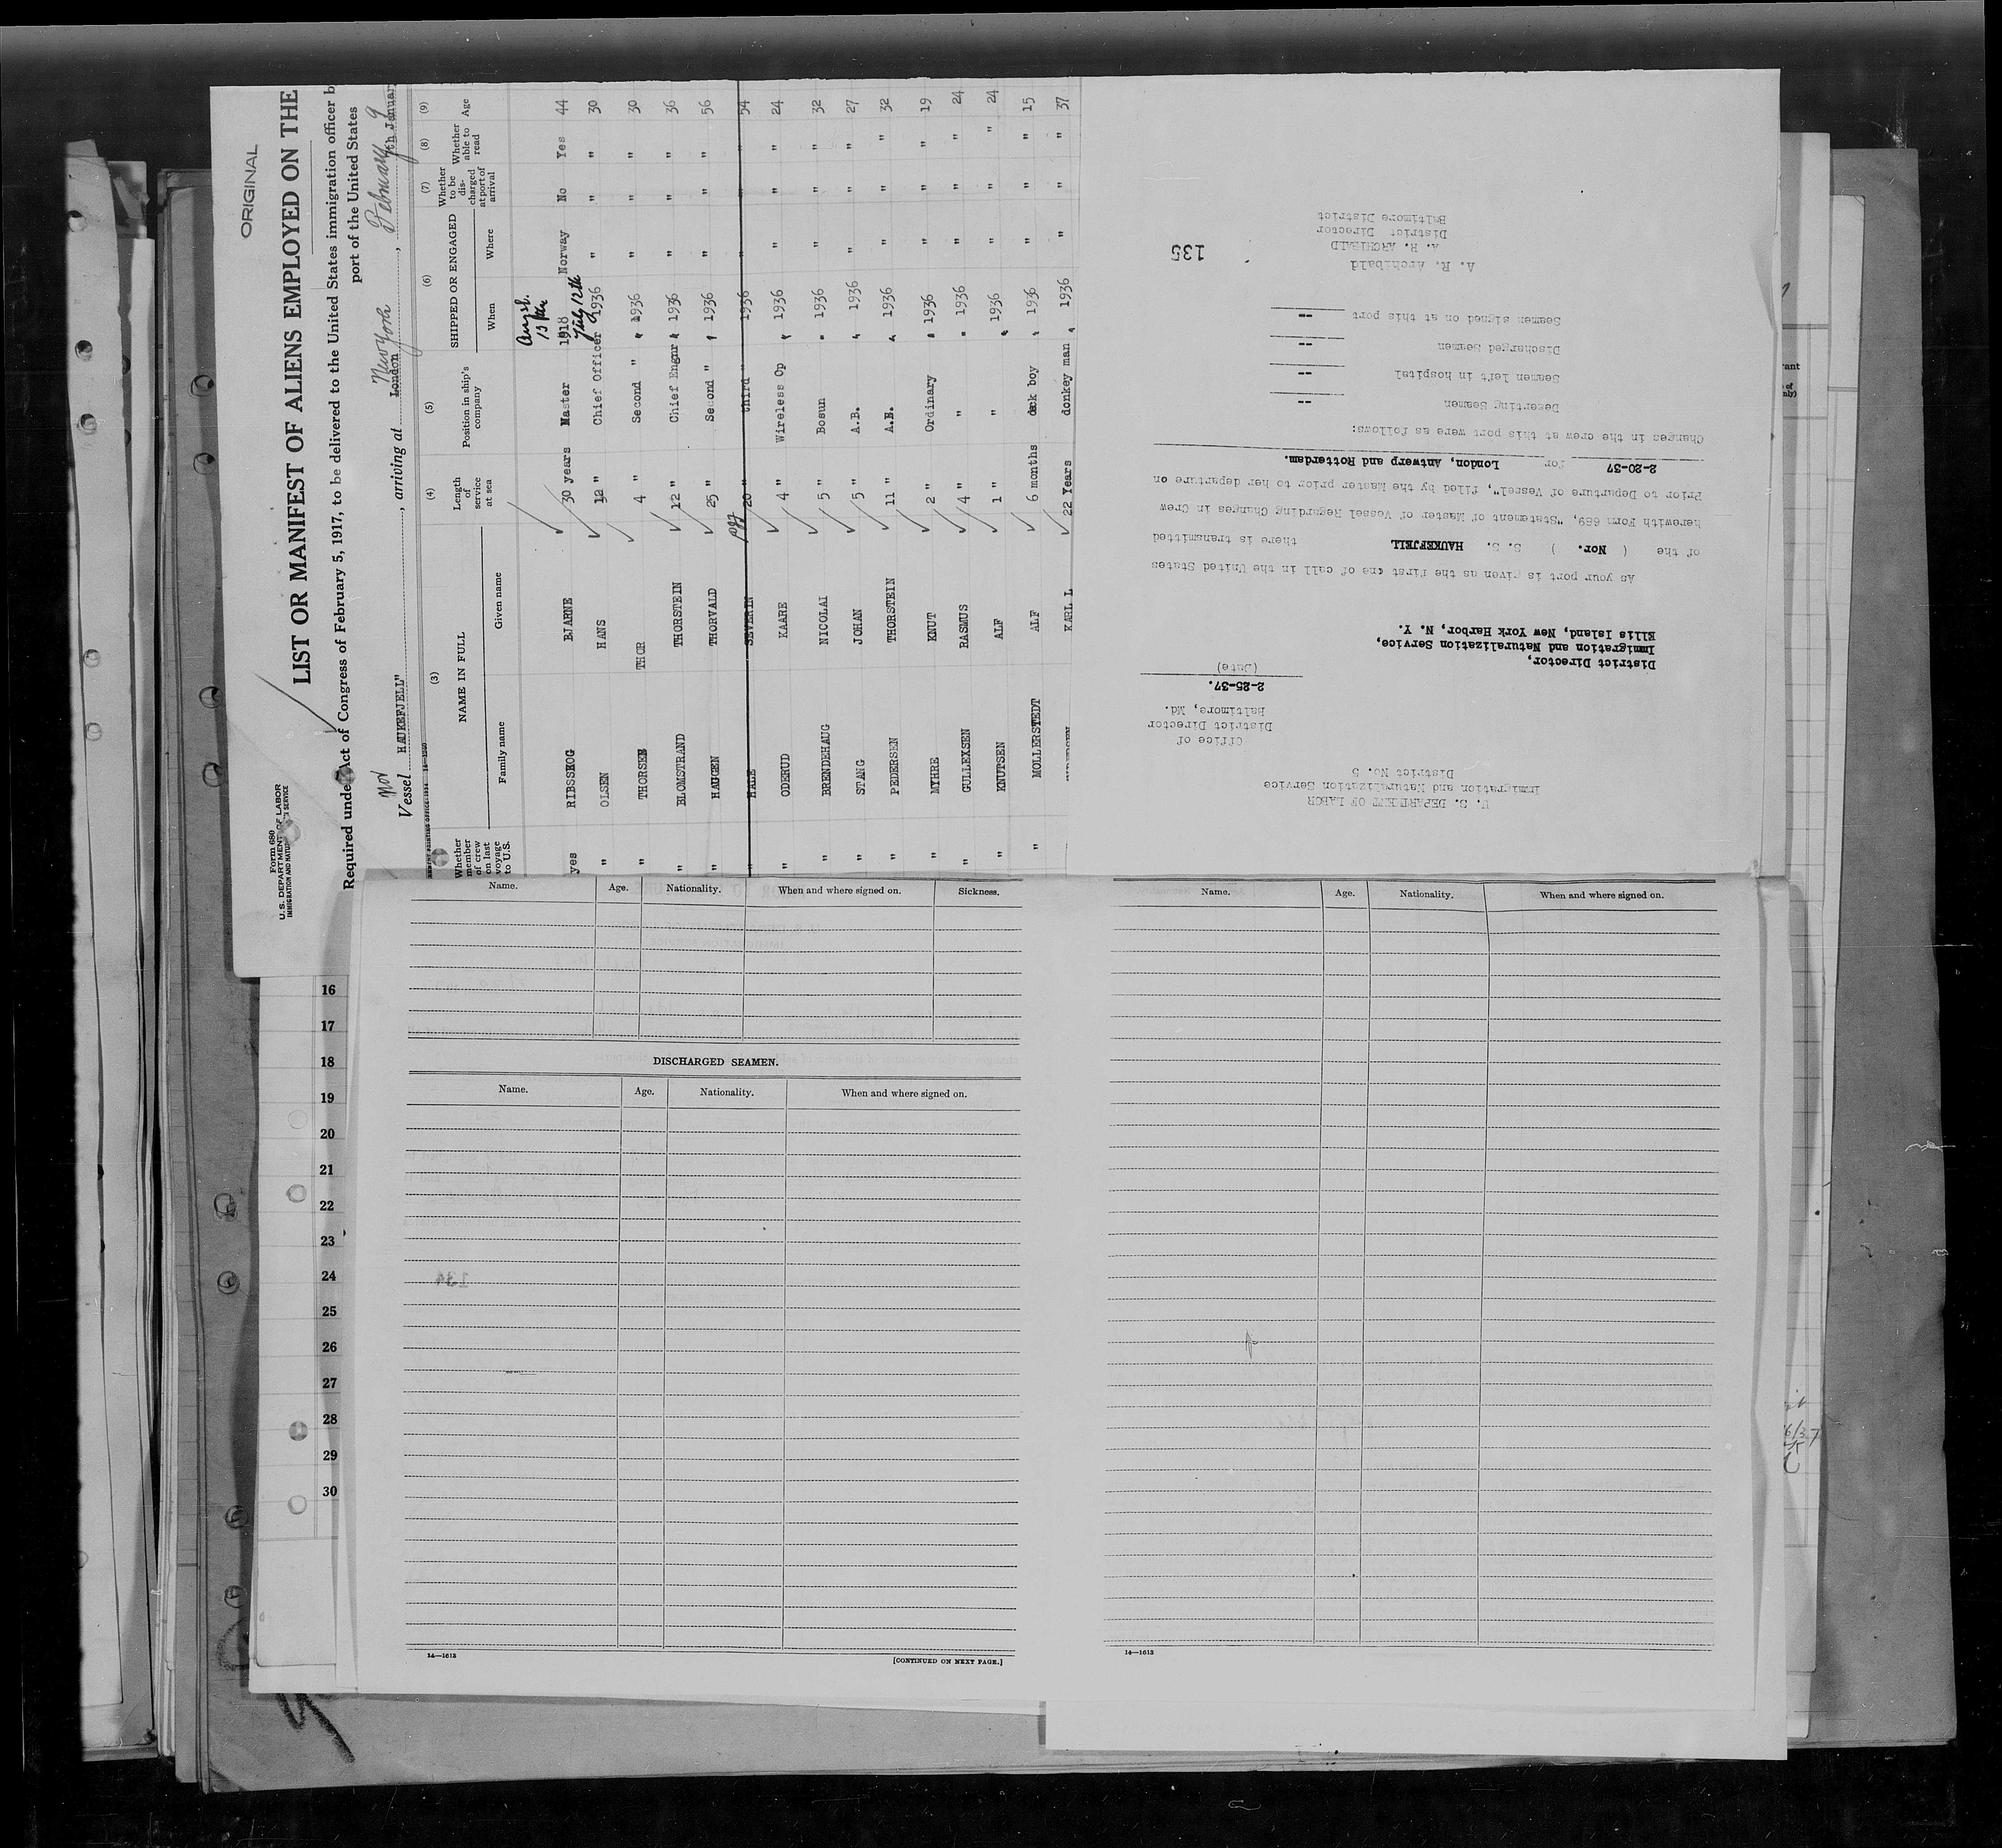 ORIGINAL
Form 680
U. S. DEPARTMENT OF LABOR
IMMIGRATION AND NATU SERVICE
LIST OR MANIFEST OF ALIENS EMPLOYED ON THE
Required under Act of Congress of February 5, 1917, to be delivered to the United States immigration officer b
port of the United States
Nor
Vessel HAUKEFJELL" , arriving at London New York , February 9 January
(3) (4) (5) (6) (7) (8) (9)
Whether member of crew on last voyage to U.S. NAME IN FULL Length of service at sea Position in ship's company SHIPPED OR ENGAGED Whether to be discharged at port of arrival Whether able to read Age
Family name Given name When Where
yes RIBSSKOG BJARNE 30 years Master 1918 Norway No Yes 44
" OLSEN HANS 12 " Chief Officer July 12th 1936 " " " 30
" THORSEN THOR 4 " Second " " 1936 " " " 30
" BLOMSTRAND THORSTEIN 12 " Chief Engnr " 1936 " " " 36
" HAUGEN THORVALD 25 " Second " " 1936 " " " 56
" HALE SEVERIN 20 " third " 1936 " " " 54
" ODERUD KAARE 4 " Wireless Op " 1936 " " " 24
" BRENDEHAUG NICOLAI 5 " Bosun " 1936 " " " 32
" STANG JOHAN 5 " A.B. " 1936 " " " 27
" PEDERSEN THORSTEIN 11 " A.B. " 1936 " " " 32
" MYHRE KNUT 2 " Ordinary " 1936 " " " 19
" GULLEKSEN RASMUS 4 " " " 1936 " " " 24
" KNUTSEN ALF 1 " " " 1936 " " " 24
" MOLLERSTEDT ALF 6 months deck boy " 1936 " " " 15
KARL L 22 Years donkey man " 1936 " " " 37
U. S. DEPARTMENT OF LABOR
Immigration and Naturalization Service
District No. 5
Office of
District Director
Baltimore, Md.
2-25-37.
(Date)
District Director,
Immigration and Naturalization Service,
Ellis Island, New York Harbor, N. Y.
As your port is given as the first one of call in the United States
of the ( Nor. ) S. S. HAUKEFJELL there is transmitted
herewith Form 689, "Statement of Master of Vessel Regarding Changes in Crew
Prior to Departure of Vessel", filed by the Master prior to her departure on
2-20-37 for London, Antwerp and Rotterdam.
Changes in the crew at this port were as follows:
Deserting Seamen --
Seamen left in hospital --
Discharged Seamen --
Seamen signed on at this port --
A. R. Archibald
A. R. ARCHIBALD
District Director
Baltimore District
135
Name. Age. Nationality. When and where signed on. Sickness.
DISCHARGED SEAMEN.
Name. Age. Nationality. When and where signed on.
134
14—1613
[CONTINUED ON NEXT PAGE.]
Name. Age. Nationality. When and where signed on.
14—1613
16
17
18
19
20
21
22
23
24
25
26
27
28
29
30